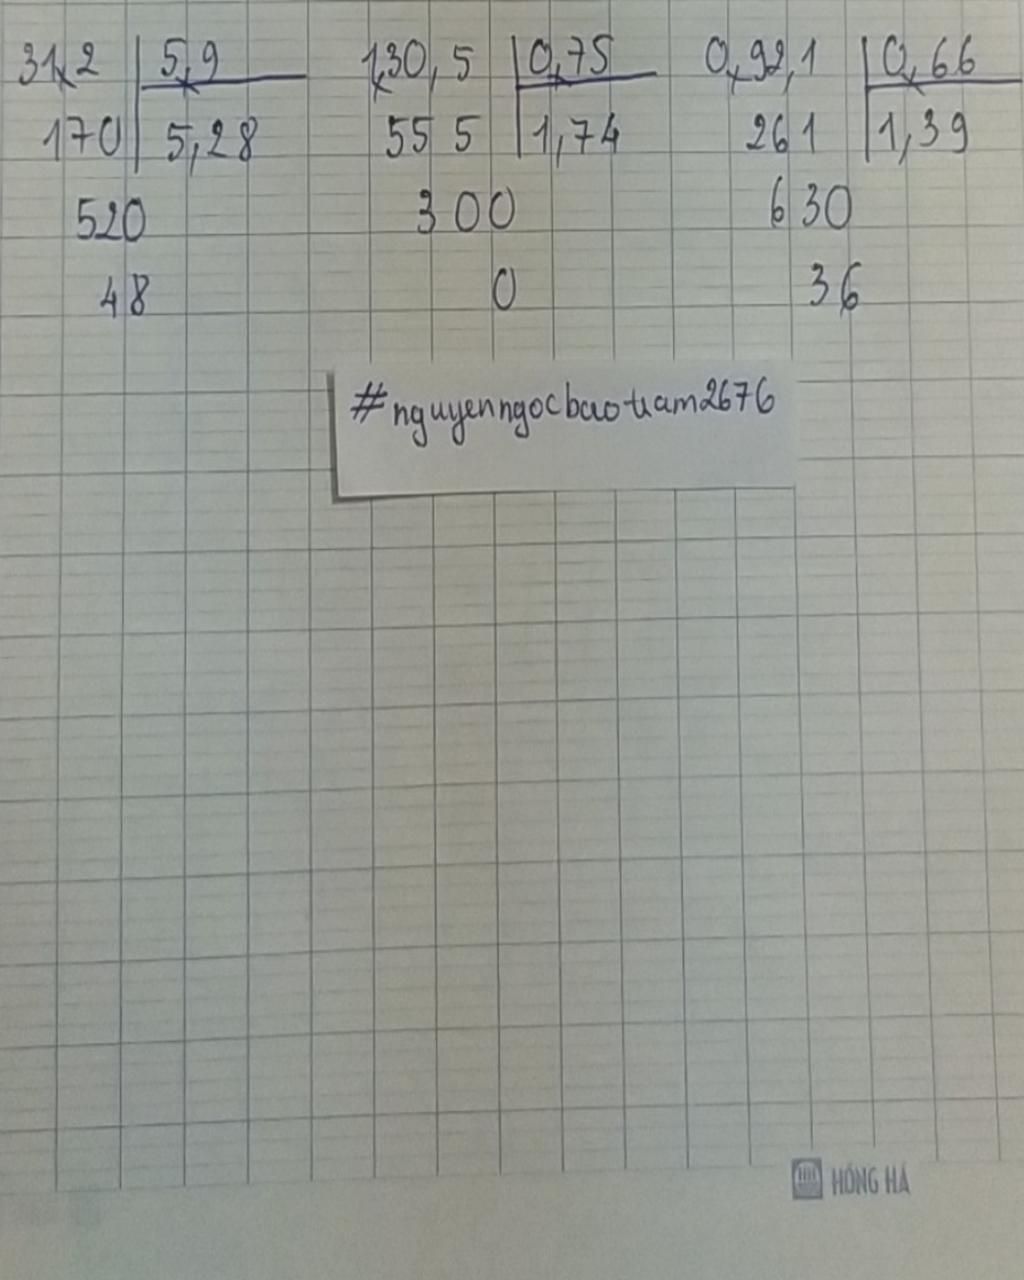 31,2 5,9 1,30,5 0,75 0,92,1 0,66
170 5,28 55 5 1,74 26 1 1,39
520 3 00 6 30
48 0 36
#nguyenngocbaotram2676
HỒNG HÀ